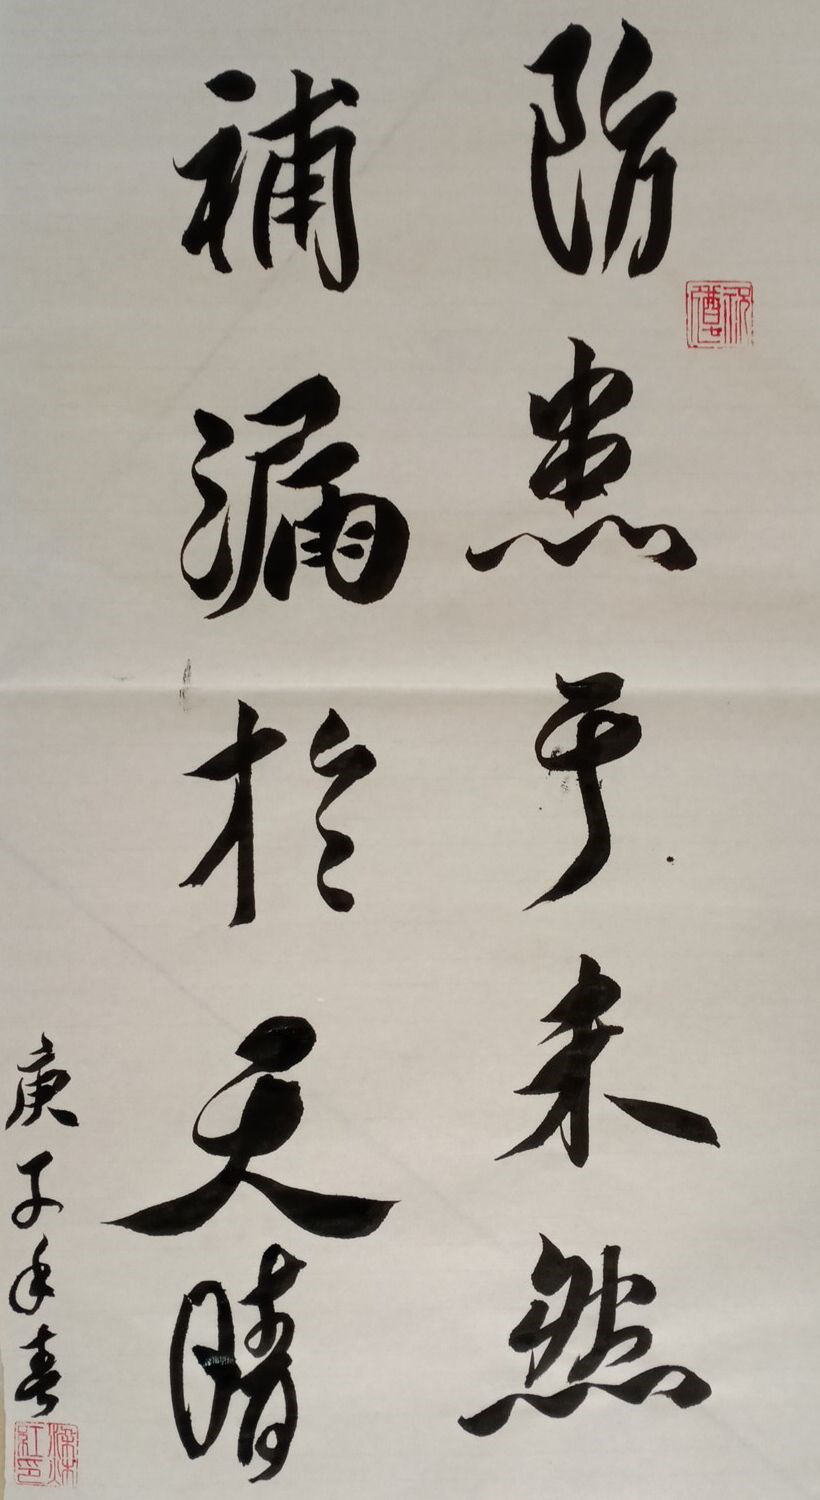 防患于未然
補漏於天晴
庚子年春